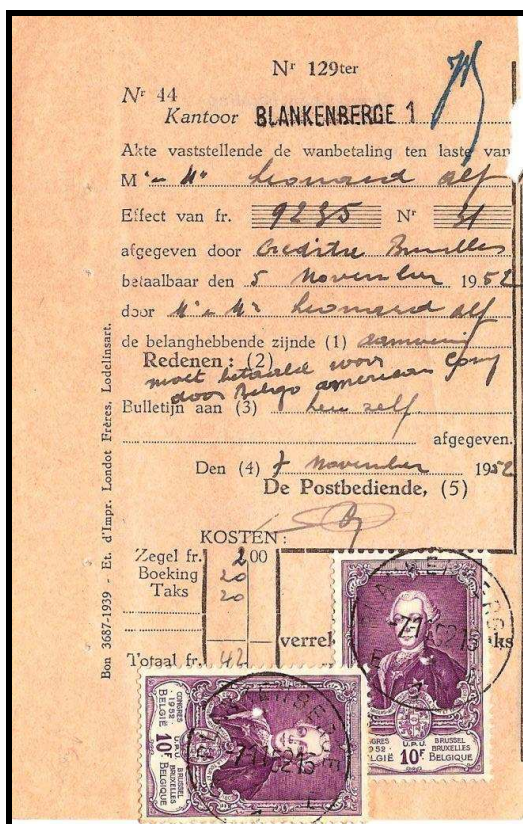 Nr 129ter
Nr 44
Kantoor BLANKENBERGE 1
Akte vaststellende de wanbetaling ten laste van
Mr - Mr Leonard Alf
Effect van fr. 9235 Nr 31
afgegeven door Creditre Bruxelles
betaalbaar den 5 November 1952
door Mr - Mr Leonard Alf
de belanghebbende zijnde (1)
Redenen : (2)
moet betaald worden
door Belgo american Comp
Bulletijn aan (3) hem zelf
afgegeven.
Den (4) 7 November 1952
De Postbediende, (5)
KOSTEN :
Zegel fr. 2 00
Boeking 20
Taks 20
verrek aks
Totaal fr. 42
Bon 3687-1939 - Et. d'Impr. Londot Frères, Lodelinsart.
CONGRES
1952
BELGIË
U.P.U.
10F
BRUSSEL
BRUXELLES
BELGIQUE
BLANKENBERGE
-7-11-52 15
CONGRES
1952
U.P.U.
BRUSSEL
BRUXELLES
BELGIË 10F BELGIQUE
BLANKENBERGE
-7-11-52 15